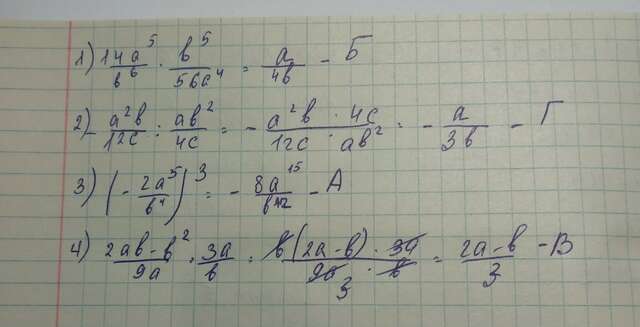 1) 14a⁵/b⁶ · b⁵/56a⁴ = a/4b - Б
2) - a²b/12c : ab²/4c = - a²b · 4c/12c · ab² = - a/3b - Г
3) (- 2a⁵/b⁴)³ = - 8a¹⁵/b¹² - А
4) 2ab-b²/9a · 3a/b = b(2a-b) · 3a/9a · b 3 = 2a-b/3 - В